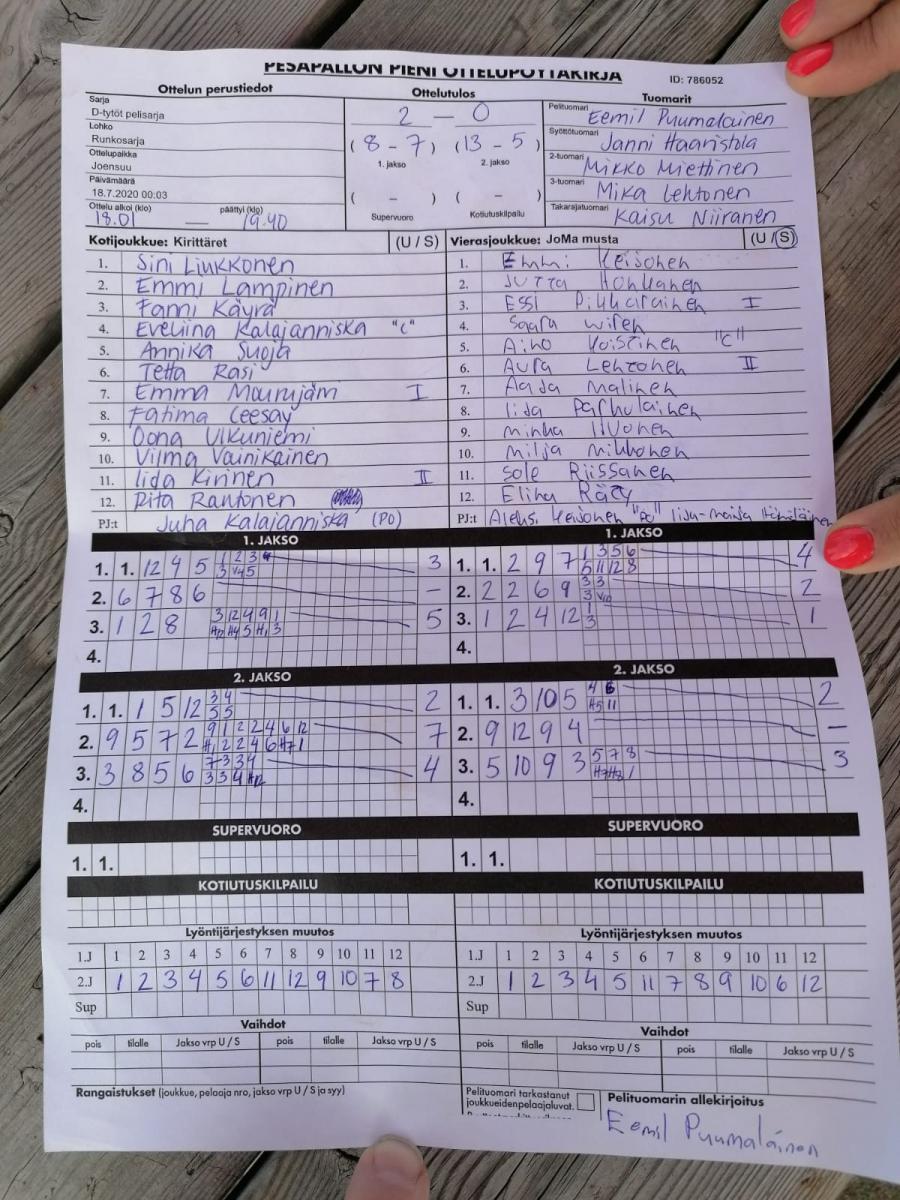 PESÄPALLON PIENI OTTELUPÖYTÄKIRJA
ID: 786052
Ottelun perustiedot
Sarja
D-tytöt pelisarja
Lohko
Runkosarja
Ottelupaikka
Joensuu
Päivämäärä
18.7.2020 00:03
Ottelu alkoi (klo) päättyi (klo)
18.01 — 19.40
Ottelutulos
2 — 0
(8 - 7) (13 - 5)
1. jakso 2. jakso
( - ) ( - )
Supervuoro Kotiutuskilpailu
Tuomarit
Pelituomari Eemil Puumalainen
Syöttötuomari Janni Haaristola
2-tuomari Mikko Miettinen
3-tuomari Mika Lehtonen
Takarajatuomari Kaisu Niiranen
Kotijoukkue: Kirittäret (U / S)
1. Sini Liukkonen
2. Emmi Lampinen
3. Fanni Käyrä
4. Eveliina Kalajanniska "C"
5. Annika Suoja
6. Tetta Rasi
7. Emma I
8. Fatima Ceesay
9. Oona Ulkuniemi
10. Vilma Vainikainen
11. Iida Kirinen II
12. Rita Rautonen
PJ:t Juha Kalajanniska (PO)
Vierasjoukkue: JoMa musta (U / S)
1. Emmi Keisonen
2. Jutta Honkanen
3. Essi Pikkarainen I
4. Saara Wiren
5. Aino Voistinen "C"
6. Aura Lehtonen II
7. Aada Malinen
8. Iida Parhulainen
9. Minka Iivonen
10. Milja Mikkonen
11. Sole Riissanen
12. Elina Räty
PJ:t Aleksi Keisonen "PO"
1. JAKSO
1. 1. 12 4 5 3
2. 6 7 8 6 -
3. 1 2 8 3 12 4 9 1 5
4.
1. JAKSO
1. 1. 2 9 7 1 3 5 6 4
5 11 12 8
2. 2 2 6 9 3 3 2
3. 1 2 4 12 1 1
3
4.
2. JAKSO
1. 1. 1 5 12 3 4 2
3 5
2. 9 5 7 2 9 1 2 2 4 6 12 7
3. 3 8 5 6 7 3 3 4 4
4.
2. JAKSO
1. 1. 3 10 5 4 6 2
H5 11
2. 9 12 9 4 -
3. 5 10 9 3 5 7 8 3
H7 H8 1
4.
SUPERVUORO
1. 1.
SUPERVUORO
1. 1.
KOTIUTUSKILPAILU
KOTIUTUSKILPAILU
Lyöntijärjestyksen muutos
1.J 1 2 3 4 5 6 7 8 9 10 11 12
2.J 1 2 3 4 5 6 11 12 9 10 7 8
Sup
Lyöntijärjestyksen muutos
1.J 1 2 3 4 5 6 7 8 9 10 11 12
2.J 1 2 3 4 5 11 7 8 9 10 6 12
Sup
Vaihdot
pois tilalle Jakso vrp U / S pois tilalle Jakso vrp U / S
Vaihdot
pois tilalle Jakso vrp U / S pois tilalle Jakso vrp U / S
Rangaistukset (joukkue, pelaaja nro, jakso vrp U / S ja syy)
Pelituomari tarkastanut
joukkueidenpelaajaluvat.
Pelituomarin allekirjoitus
Eemil Puumalainen